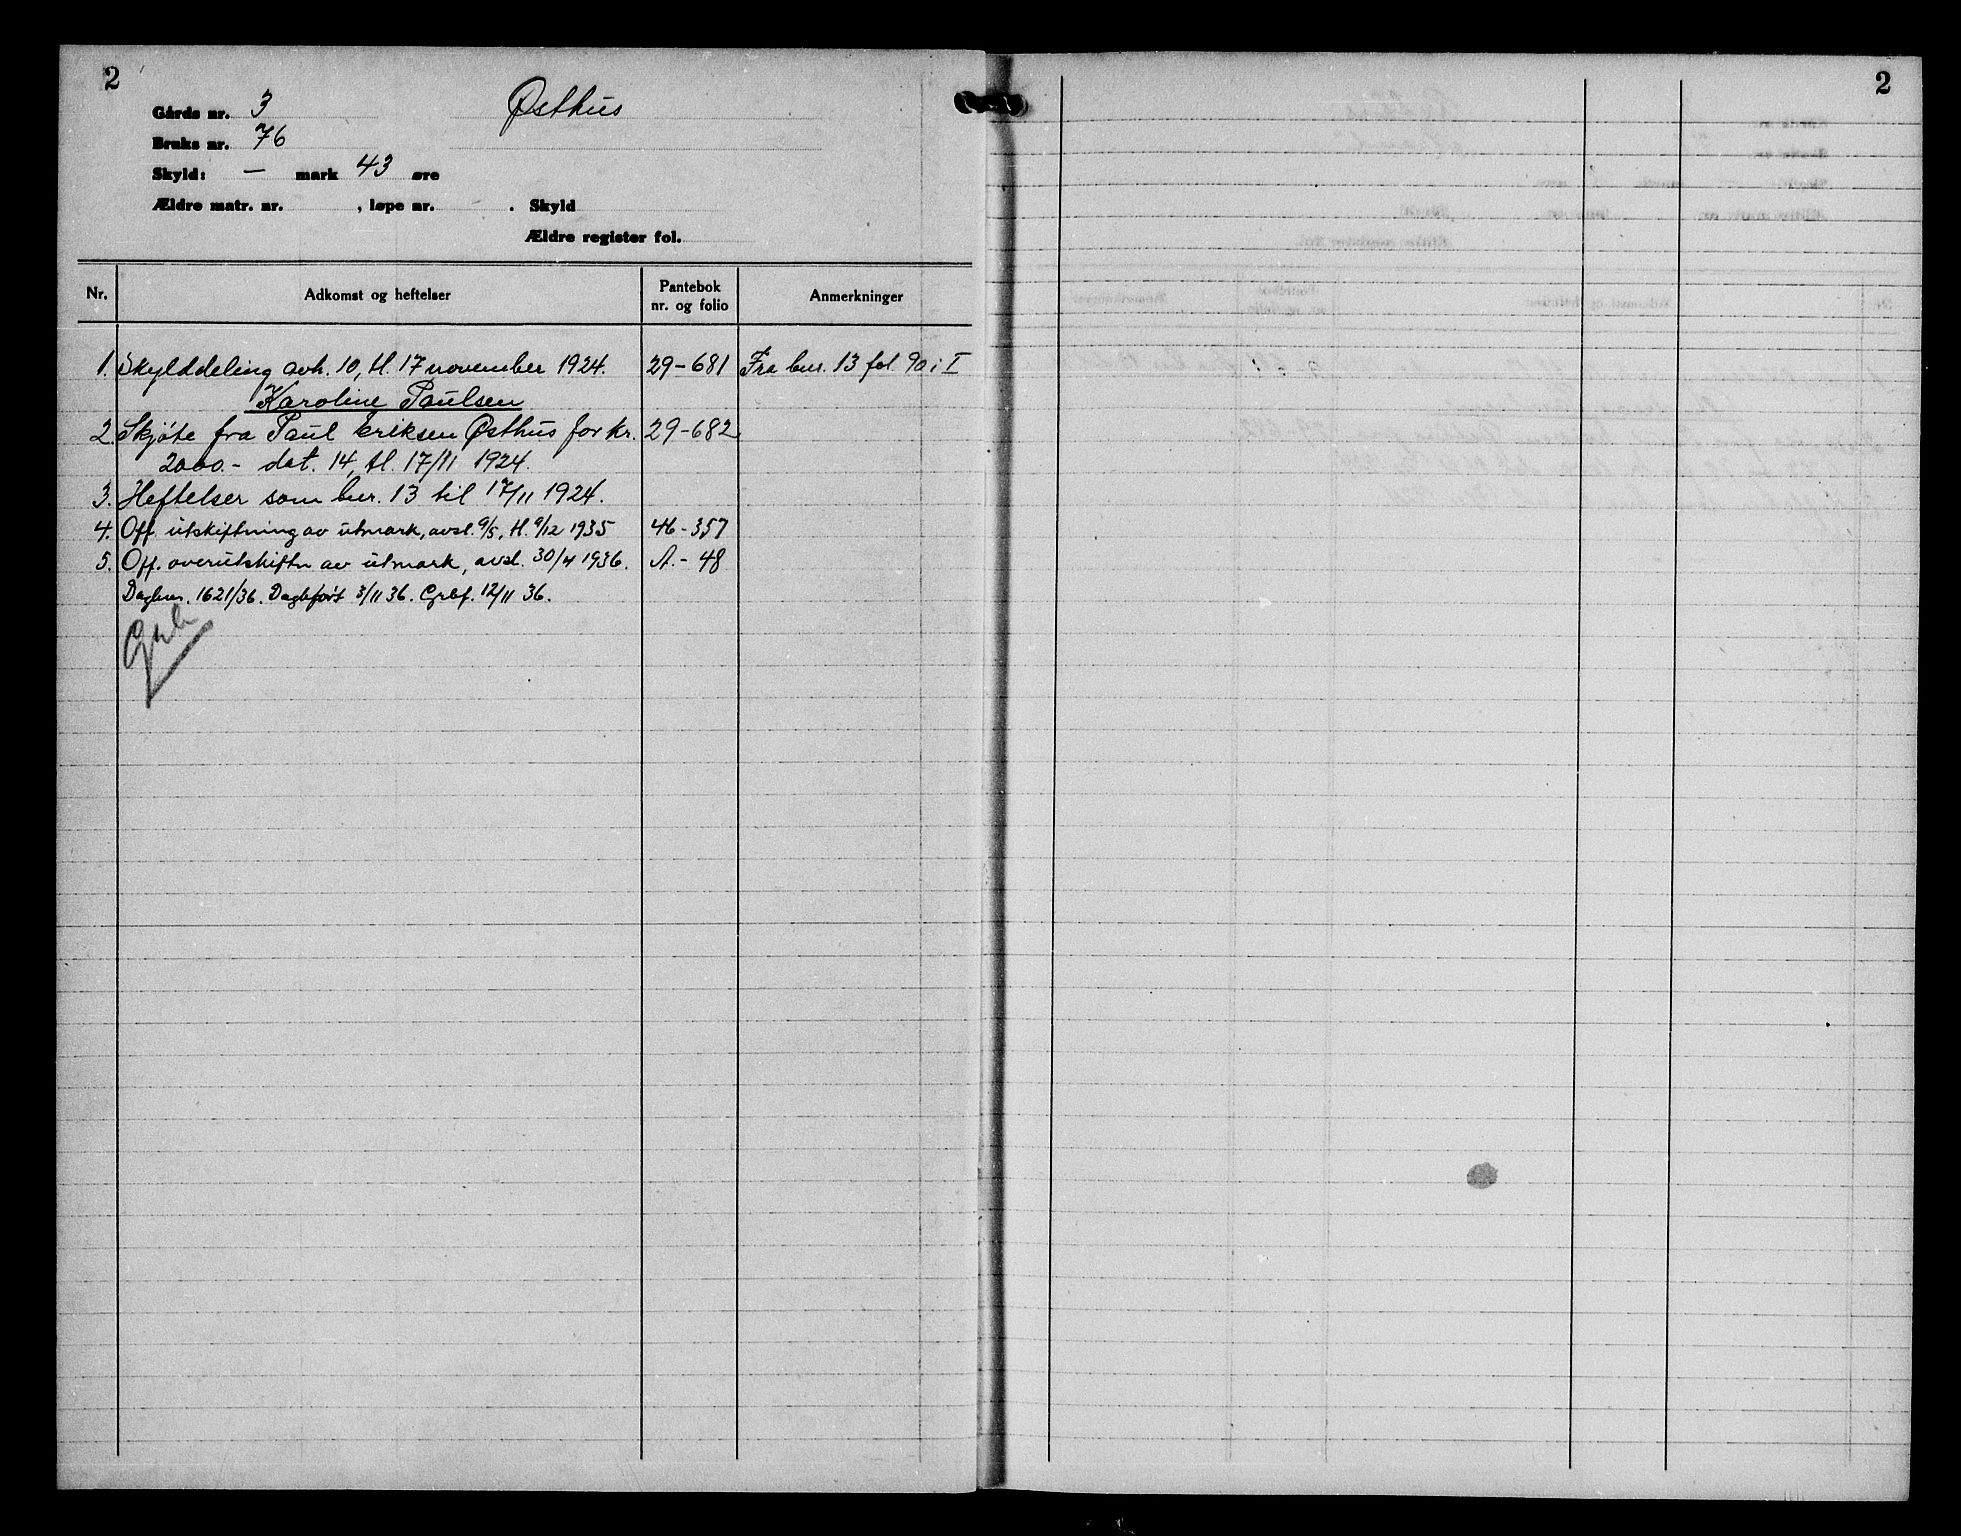 2
Gårds nr. 3 Østhus
Bruks nr. 76
Skyld: — mark 43 øre
Ældre matr. nr. , løpe nr. . Skyld
Ældre register fol.
Nr. Adkomst og heftelser Pantebok nr. og folio Anmerkninger
1. Skylddeling avh. 10, tl. 17 november 1924. 29-681 Fra bnr. 13 fol 90 i I
Karoline Paulsen
2. Skjøte fra Paul Eriksen Østhus for kr. 29-682
2000.- dat. 14, tl. 17/11 1924.
3. Heftelser som bnr. 13 til 17/11 1924.
4. Off. utskiftning av utmark, avsl. 9/5, tl. 9/12 1935 46-357
5. Off. overutskiftn av utmark, avsl. 30/4 1936. A.-48
Dagbnr. 1621/36. Dagbført 3/11 36. Grbf. 12/11 36.
2